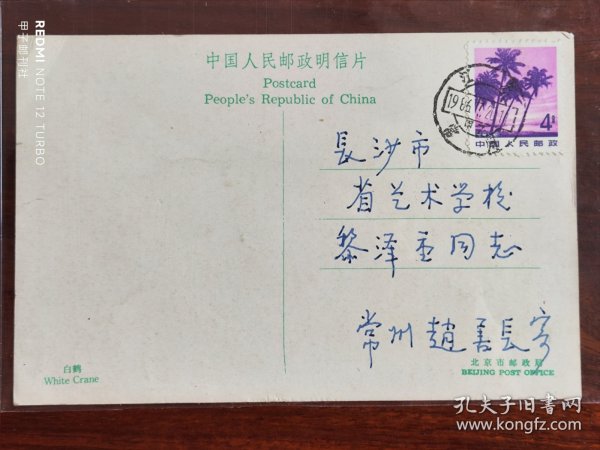 中国人民邮政明信片
Postcard
People's Republic of China
江
1986
4分
中国人民邮政
長沙市
省艺术学校
黎泽重同志
常州 趙善長寄
白鹤
White Crane
北京市邮政局
BEIJING POST OFFICE
REDMI NOTE 12 TURBO
甲子邮刊社
孔夫子旧书网
www.kongfz.com